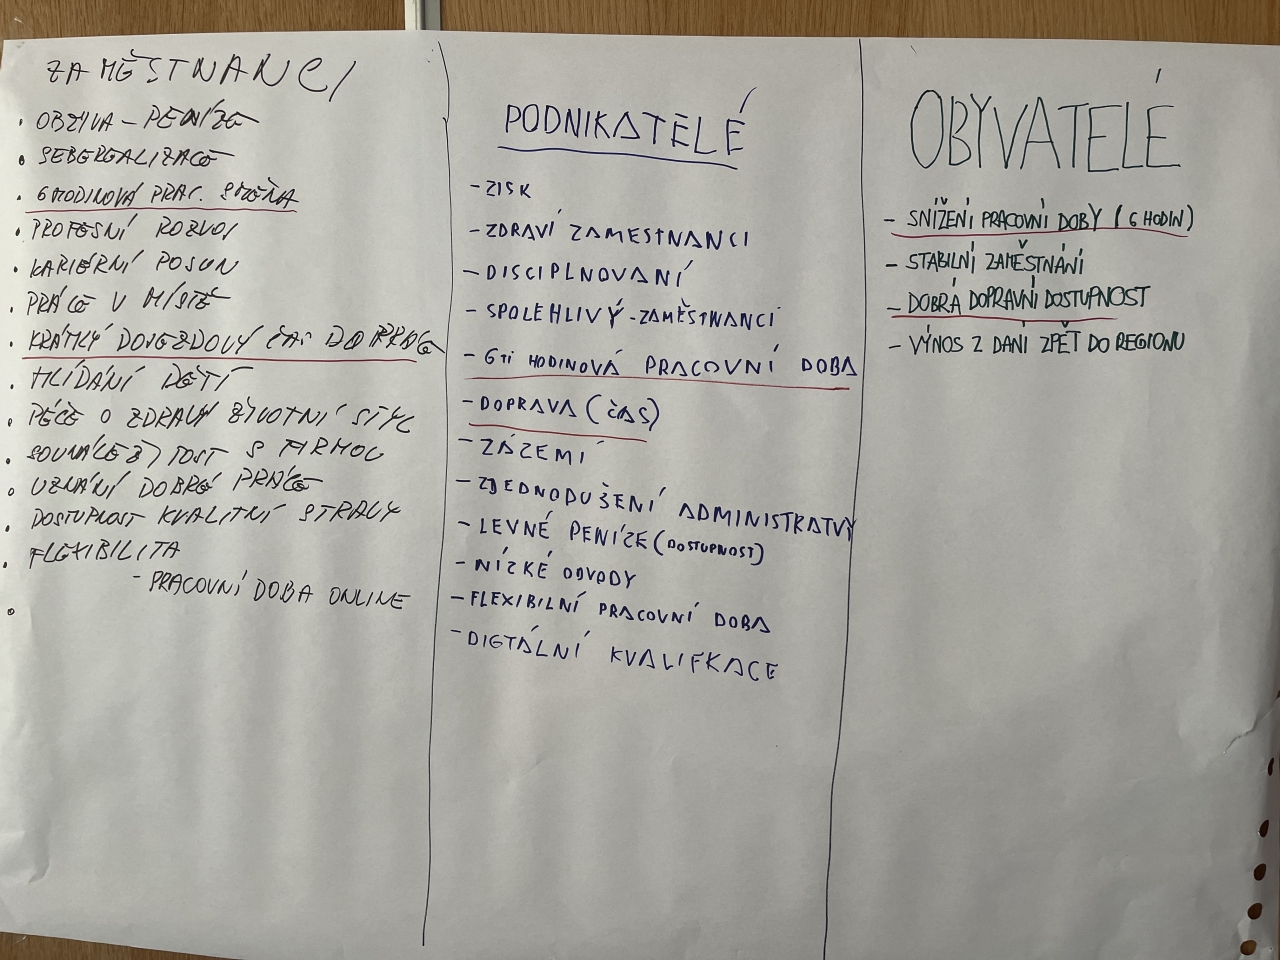 ZAMĚSTNANCI
• OBŽIVA – PENÍZE
• SEBEREALIZACE
• 6 HODINOVÁ PRAC. SMĚNA
• PROFESNÍ ROZVOJ
• KARIÉRNÍ POSUN
• PRÁCE V MÍSTĚ
• KRÁTKÝ DOJEZDOVÝ ČAS DO PRÁCE
• HLÍDÁNÍ DĚTÍ
• PÉČE O ZDRAVÝ ŽIVOTNÍ STYL
• SOUNÁLEŽITOST S FIRMOU
• UZNÁNÍ DOBRÉ PRÁCE
• DOSTUPNOST KVALITNÍ STRAVY
• FLEXIBILITA
- PRACOVNÍ DOBA ONLINE
•
PODNIKATELÉ
- ZISK
- ZDRAVÍ ZAMESTNANCI
- DISCIPLNOVANÍ
- SPOLEHLIVÝ - ZAMĚSTNANCI
- 6TI HODINOVÁ PRACOVNÍ DOBA
- DOPRAVA (ČAS)
- ZÁZEMÍ
- ZJEDNODUŠENÍ ADMINISTRATVY
- LEVNÉ PENÍZE (DOSTUPNOST)
- NÍZKÉ ODVODY
- FLEXIBILNÍ PRACOVNÍ DOBA
- DIGTÁLNÍ KVALIFKACE
OBYVATELÉ
- SNÍŽENÍ PRACOVNÍ DOBY (6 HODIN)
- STABILNÍ ZAMĚSTNÁNÍ
- DOBRÁ DOPRAVNÍ DOSTUPNOST
- VÝNOS Z DANÍ ZPĚT DO REGIONU